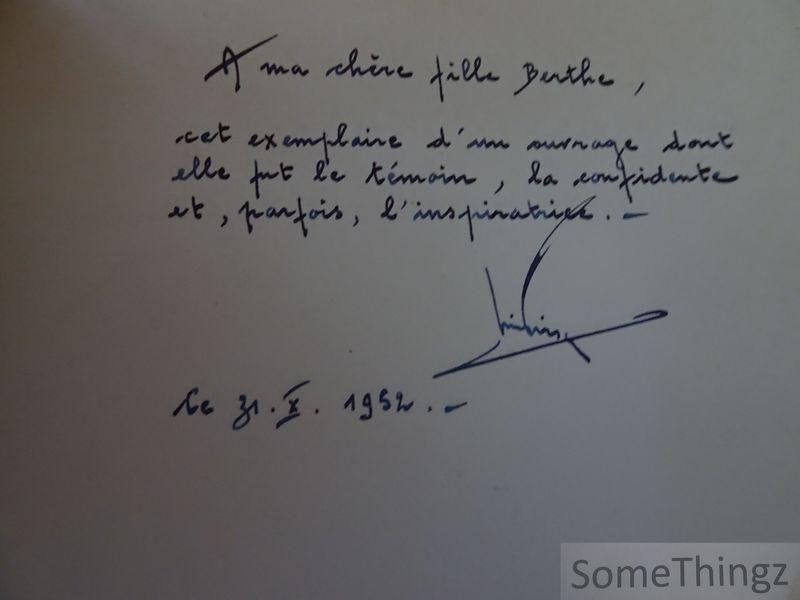 A ma chère fille Berthe,
cet exemplaire d'un ouvrage dont
elle fut le témoin, la confidente
et, parfois, l'inspiratrice. –
Le 31. X. 1952. –
SomeThingz